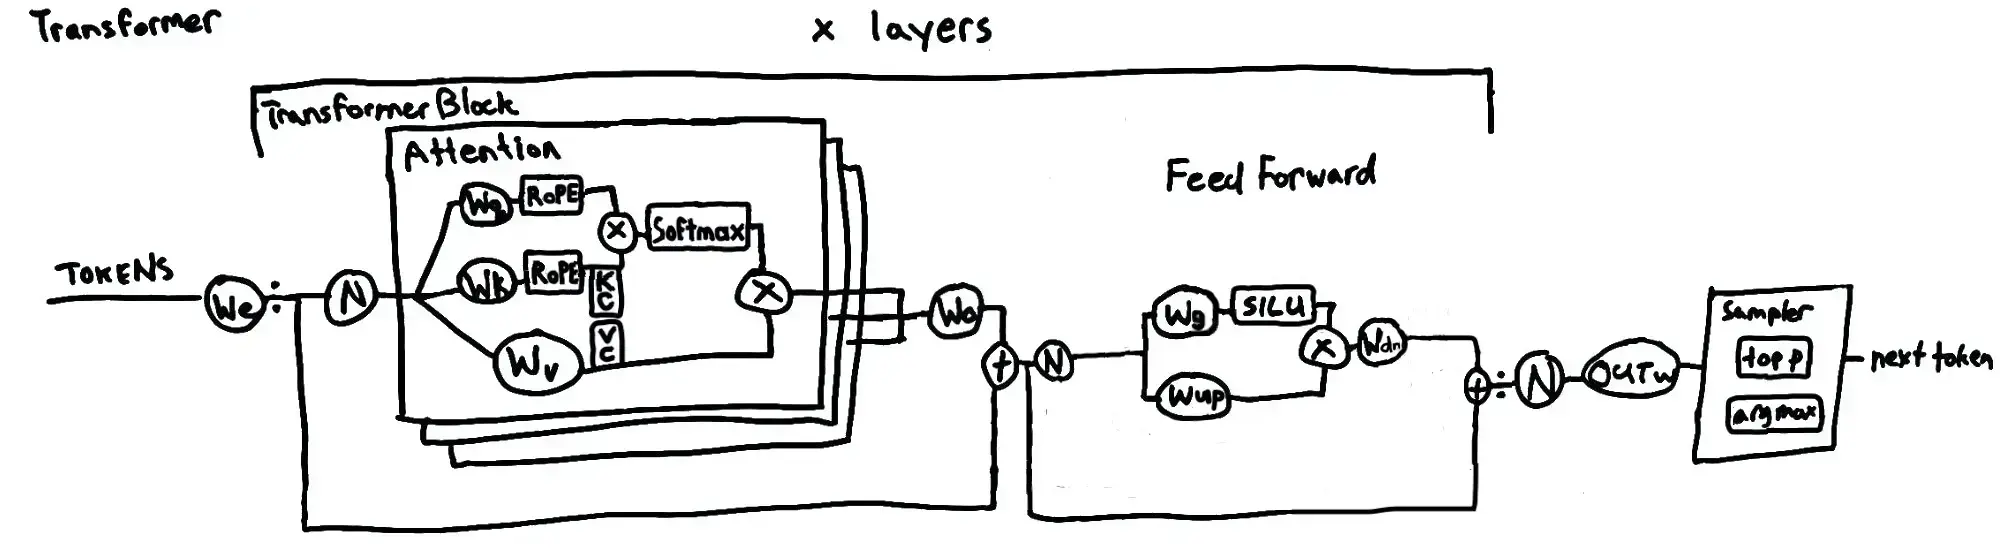 Transformer
x layers
Transformer Block
Attention
Feed Forward
TOKENS
We
N
Wq
RoPE
x
Softmax
Wk
RoPE
KC
Wv
VC
x
Wo
+
N
Wg
SILU
x
Wup
Wdn
+
N
OUTw
Sampler
top p
argmax
next token